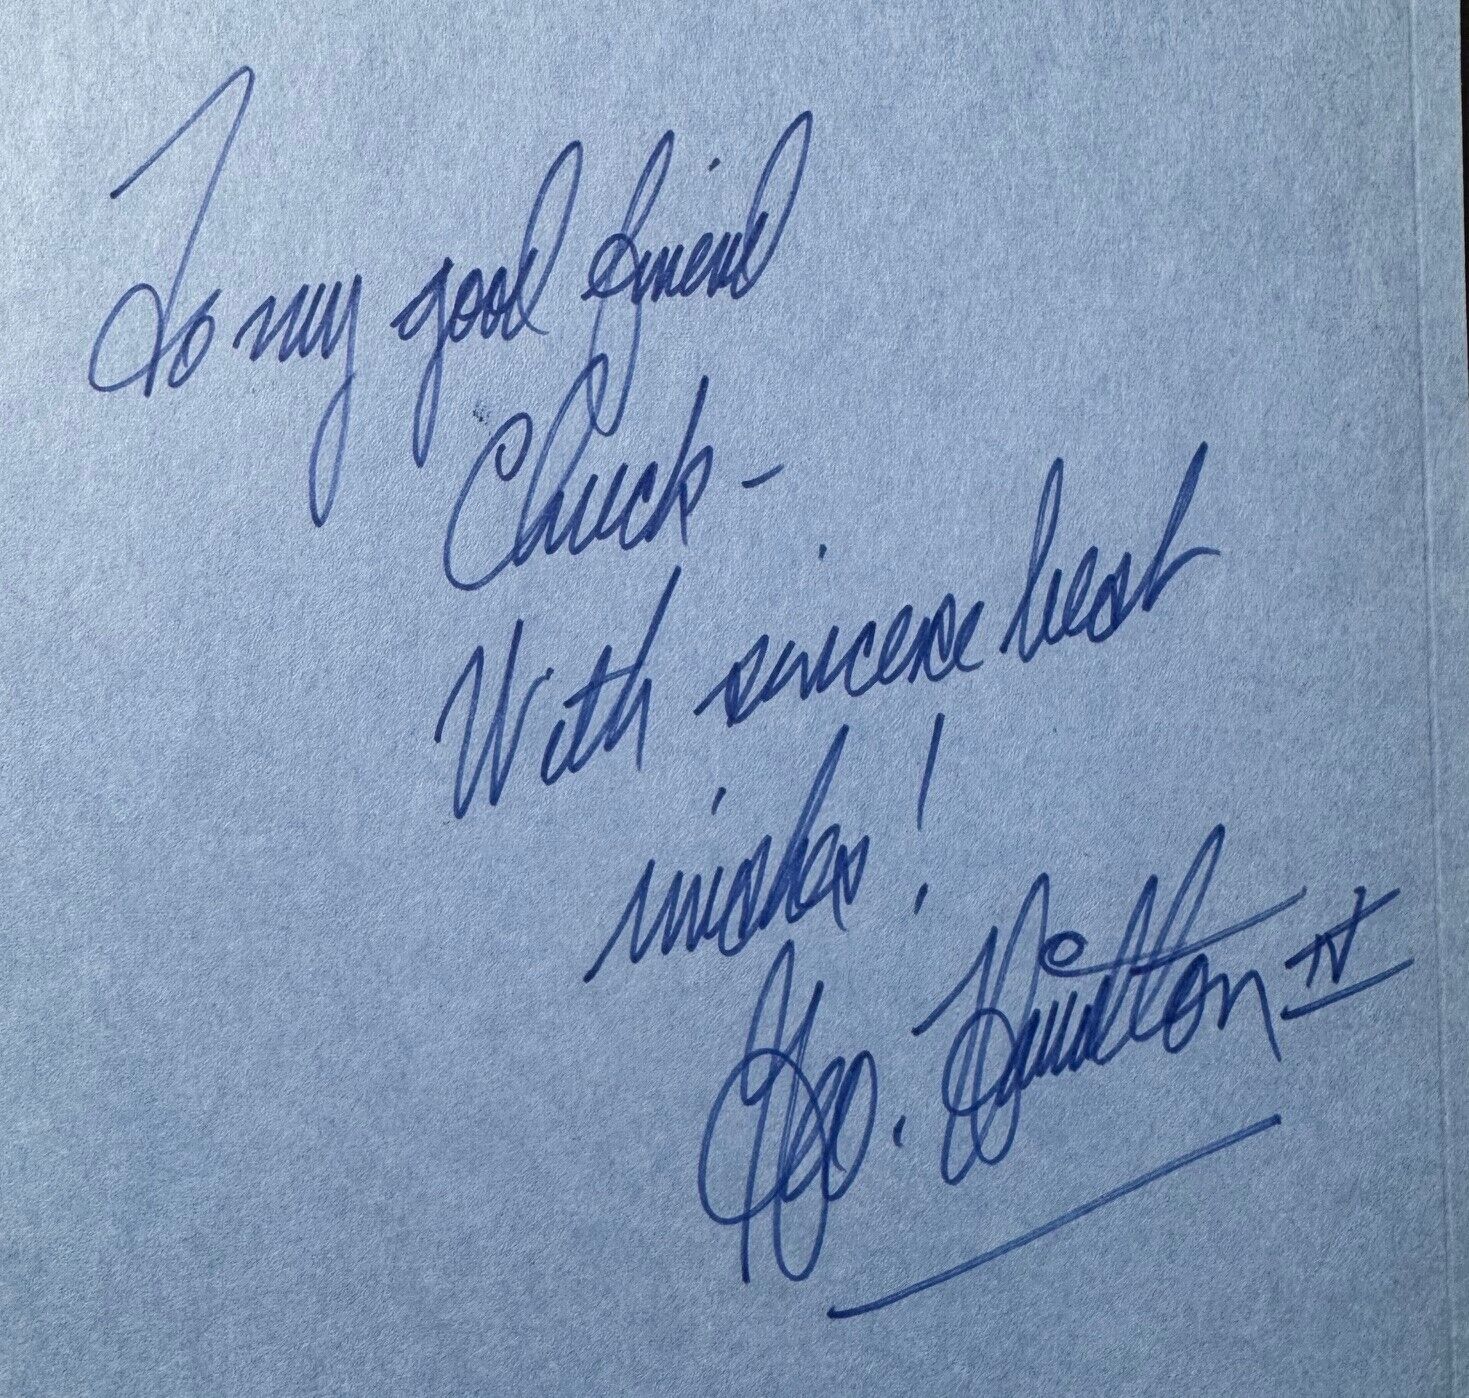 To my good friend
Chuck -
With sincere best
wishes!
Geo. Hamilton IV